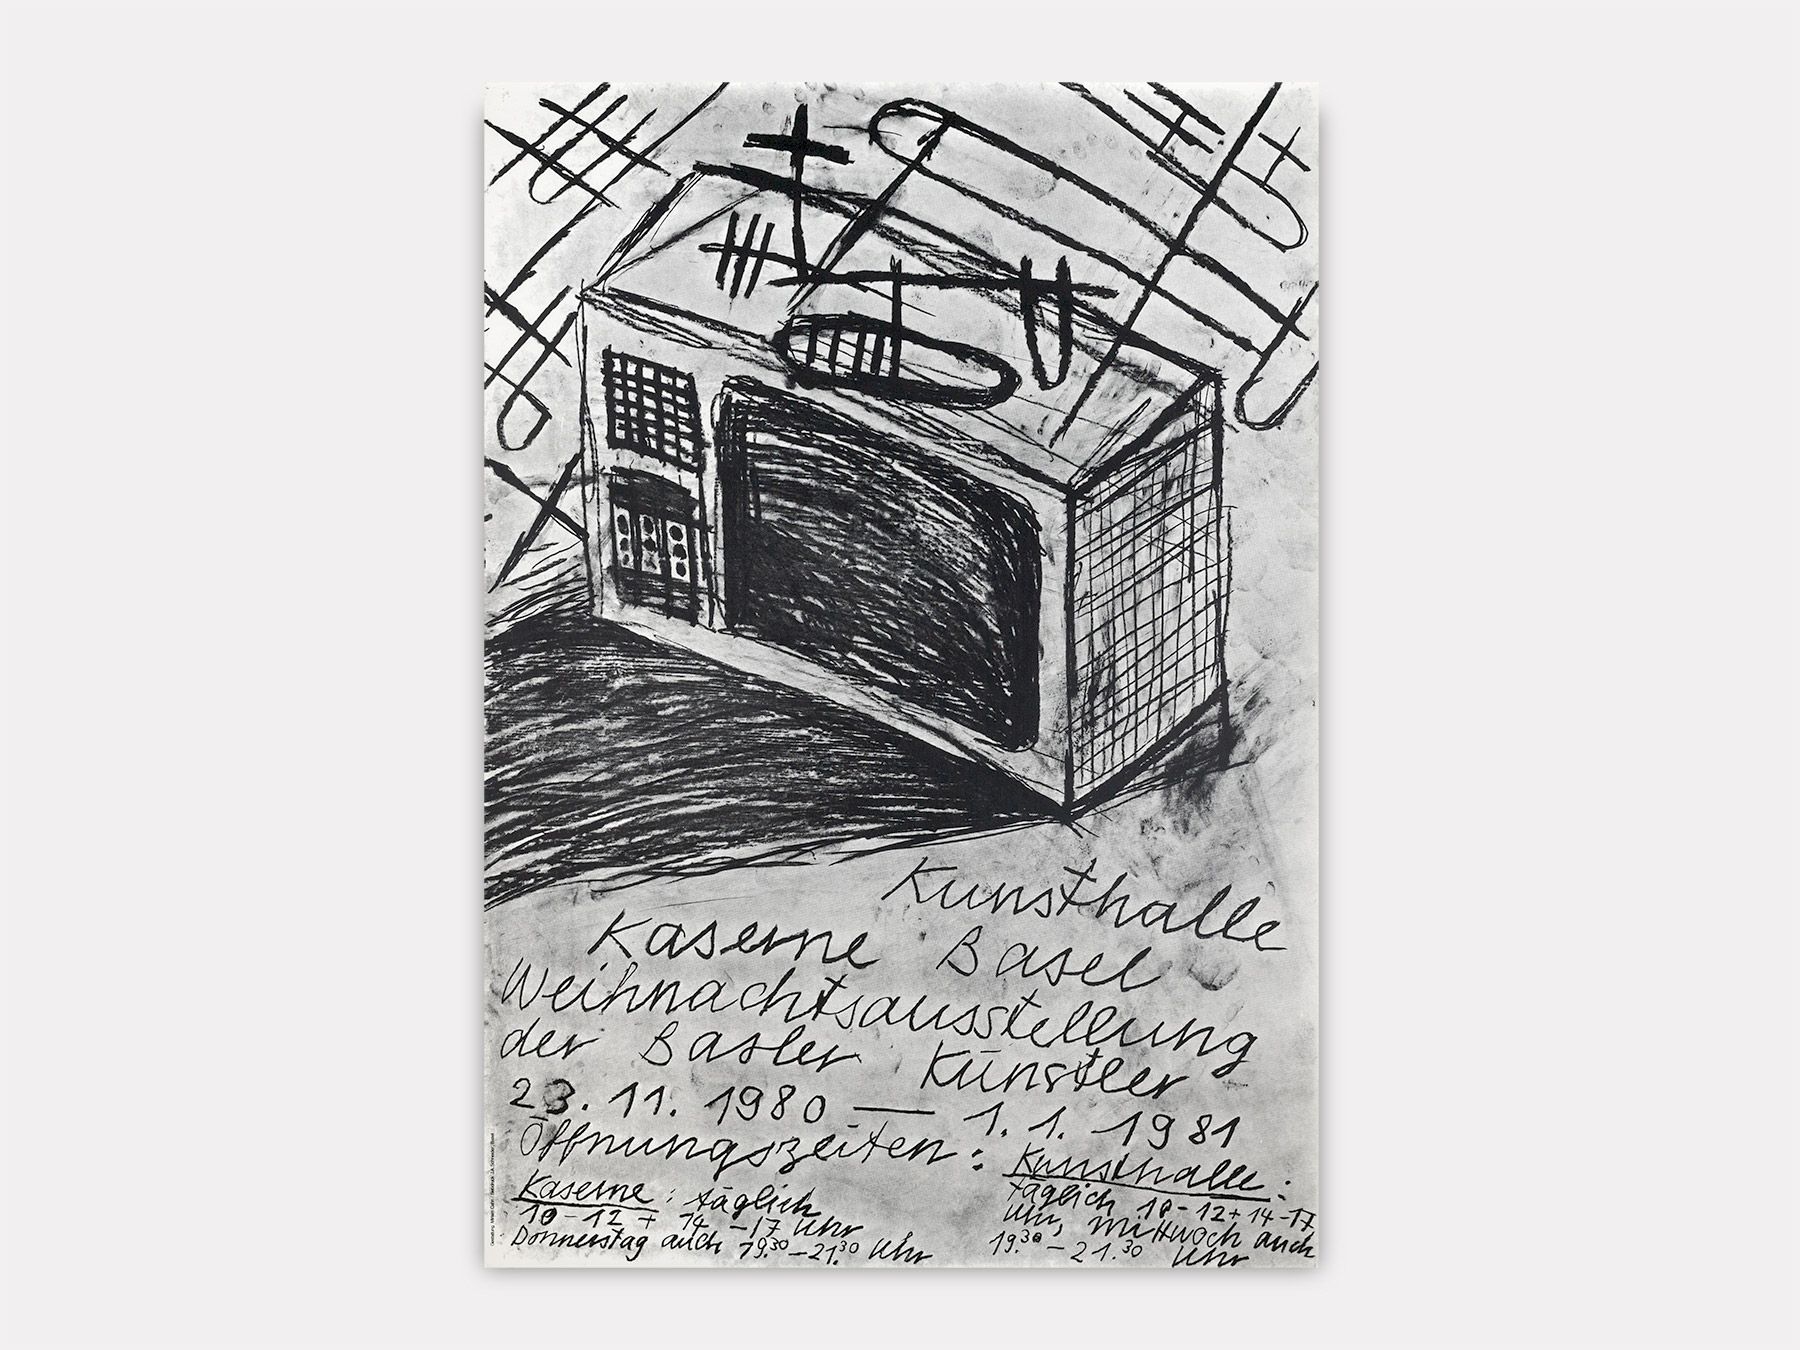 Kunsthalle
Kaserne Basel
Weihnachtsausstellung
der Basler Künstler
23. 11. 1980 — 1. 1. 1981
Öffnungszeiten:
Kaserne: täglich
10-12 + 14-17 Uhr
Donnerstag auch 19.30-21.30 Uhr
Kunsthalle:
täglich 10-12+14-17
Uhr, Mittwoch auch
19.30 - 21.30 Uhr